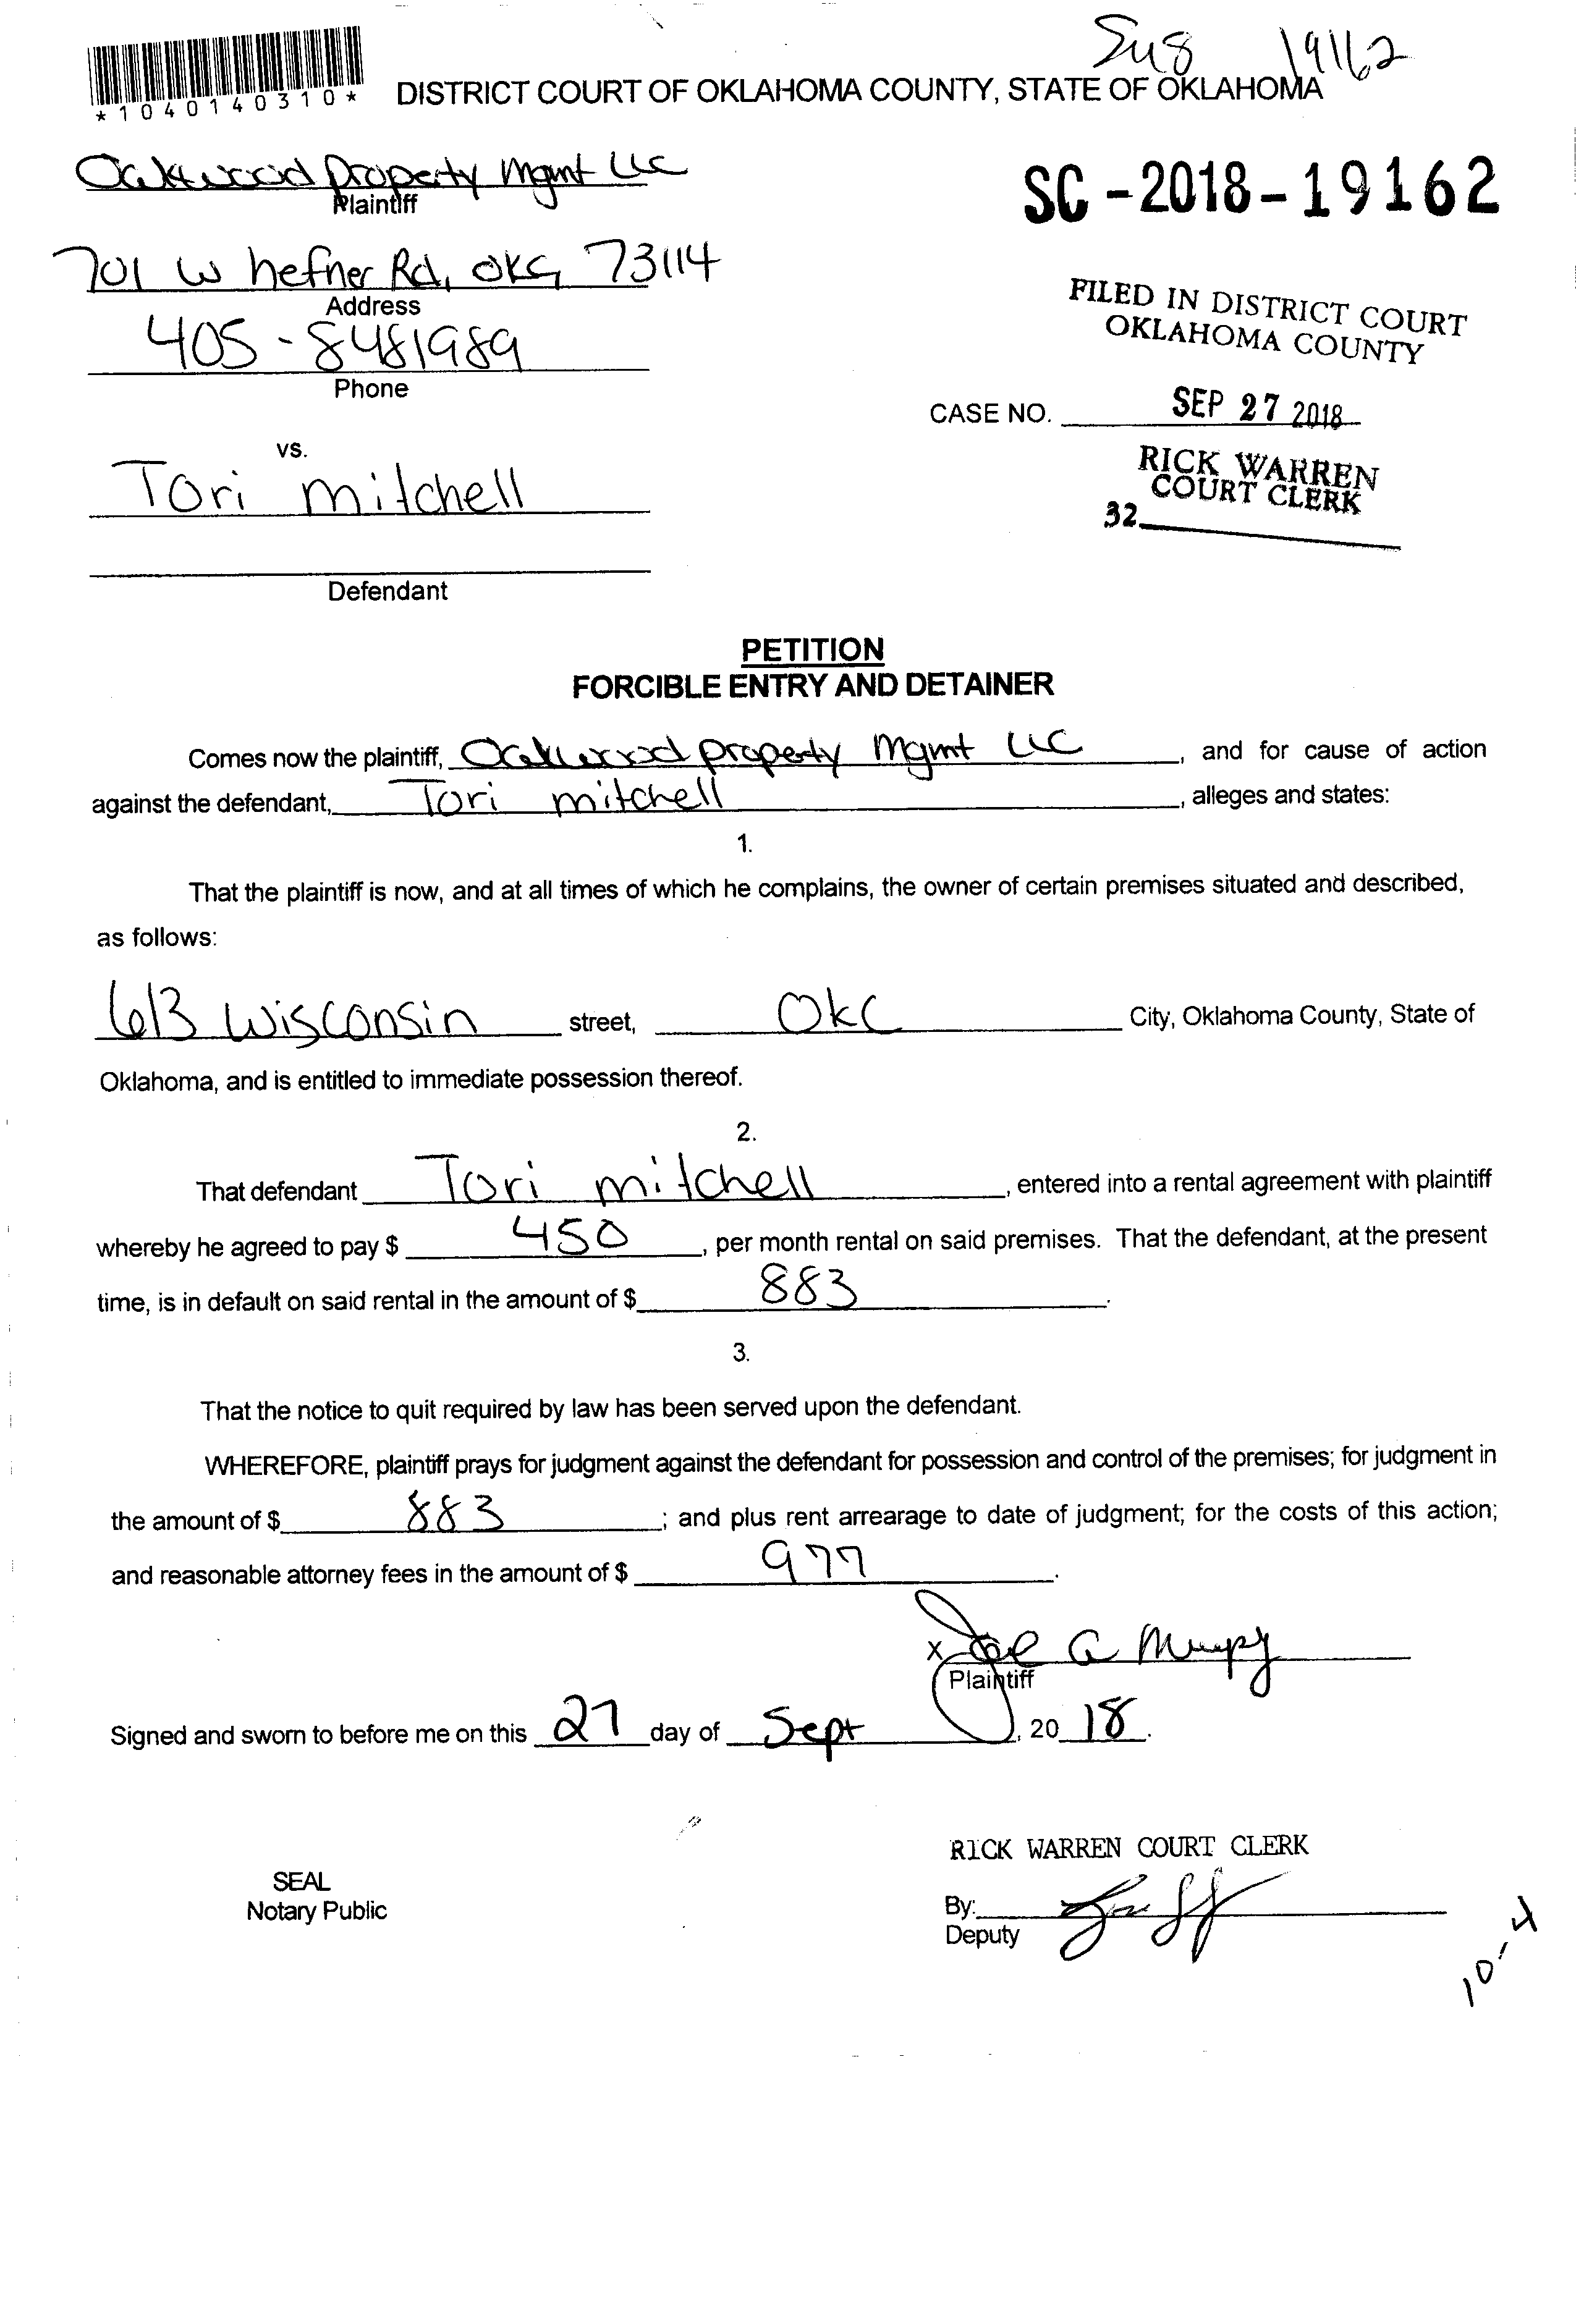 19162
*1040140310*
DISTRICT COURT OF OKLAHOMA COUNTY, STATE OF OKLAHOMA
Oakwood property mgmt LLC
Plaintiff
SC-2018-19162
701 W hefner Rd, OKC, 73114
Address
405-8481989
Phone
FILED IN DISTRICT COURT
OKLAHOMA COUNTY
CASE NO. SEP 27 2018
vs.
Tori mitchell
RICK WARREN
COURT CLERK
32
Defendant
PETITION
FORCIBLE ENTRY AND DETAINER
Comes now the plaintiff, Oakwood property Mgmt LLC, and for cause of action
against the defendant, Tori mitchell, alleges and states:
1.
That the plaintiff is now, and at all times of which he complains, the owner of certain premises situated and described,
as follows:
613 Wisconsin street, OKC City, Oklahoma County, State of
Oklahoma, and is entitled to immediate possession thereof.
2.
That defendant Tori mitchell, entered into a rental agreement with plaintiff
whereby he agreed to pay $ 450, per month rental on said premises. That the defendant, at the present
time, is in default on said rental in the amount of $ 883.
3.
That the notice to quit required by law has been served upon the defendant.
WHEREFORE, plaintiff prays for judgment against the defendant for possession and control of the premises; for judgment in
the amount of $ 883; and plus rent arrearage to date of judgment; for the costs of this action;
and reasonable attorney fees in the amount of $ 977.
x
Plaintiff
Signed and sworn to before me on this 27 day of Sept, 20 18.
RICK WARREN COURT CLERK
SEAL
Notary Public
By:
Deputy
10-4